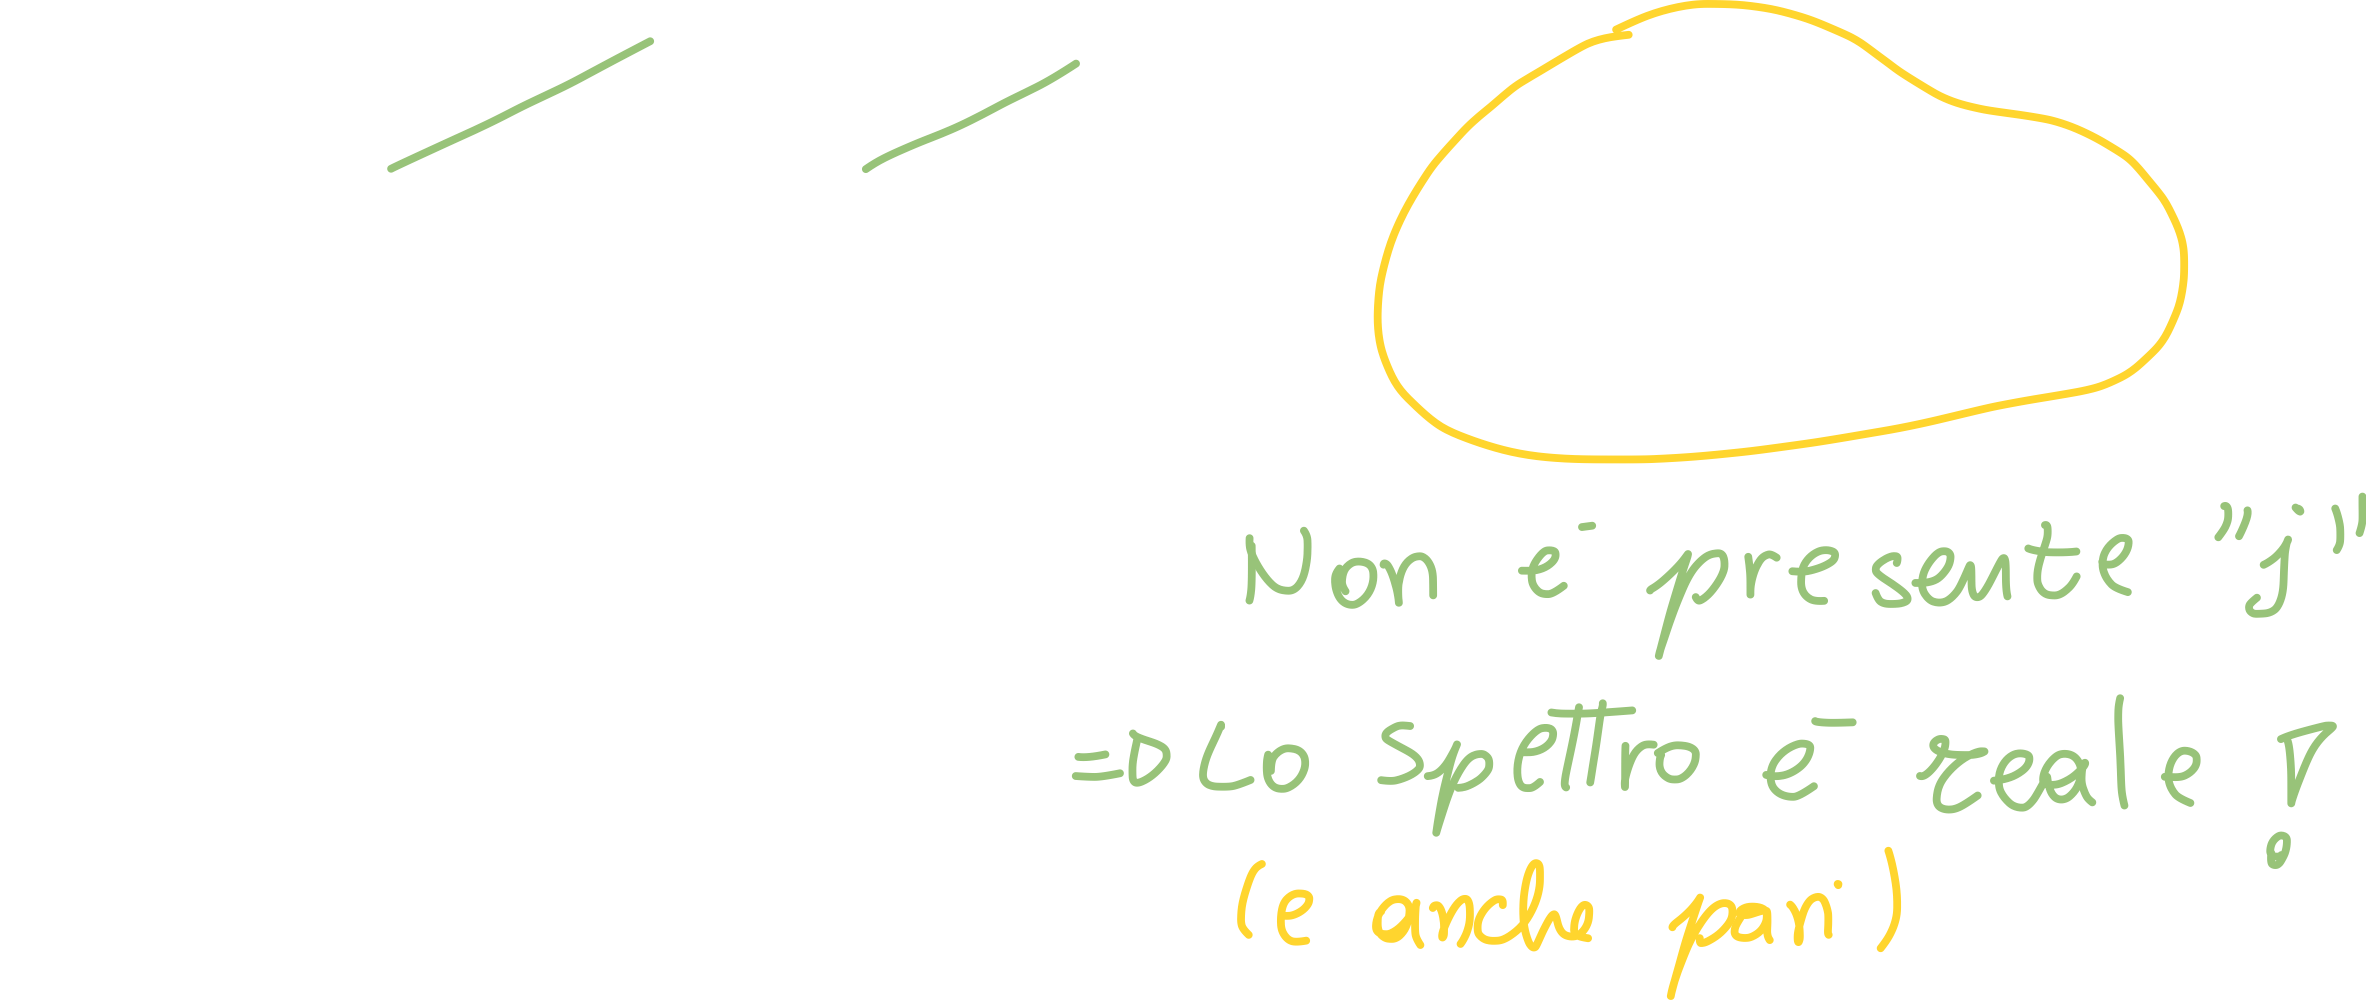 Non è presente "j"
=> Lo spettro è reale !
(e anche pari)